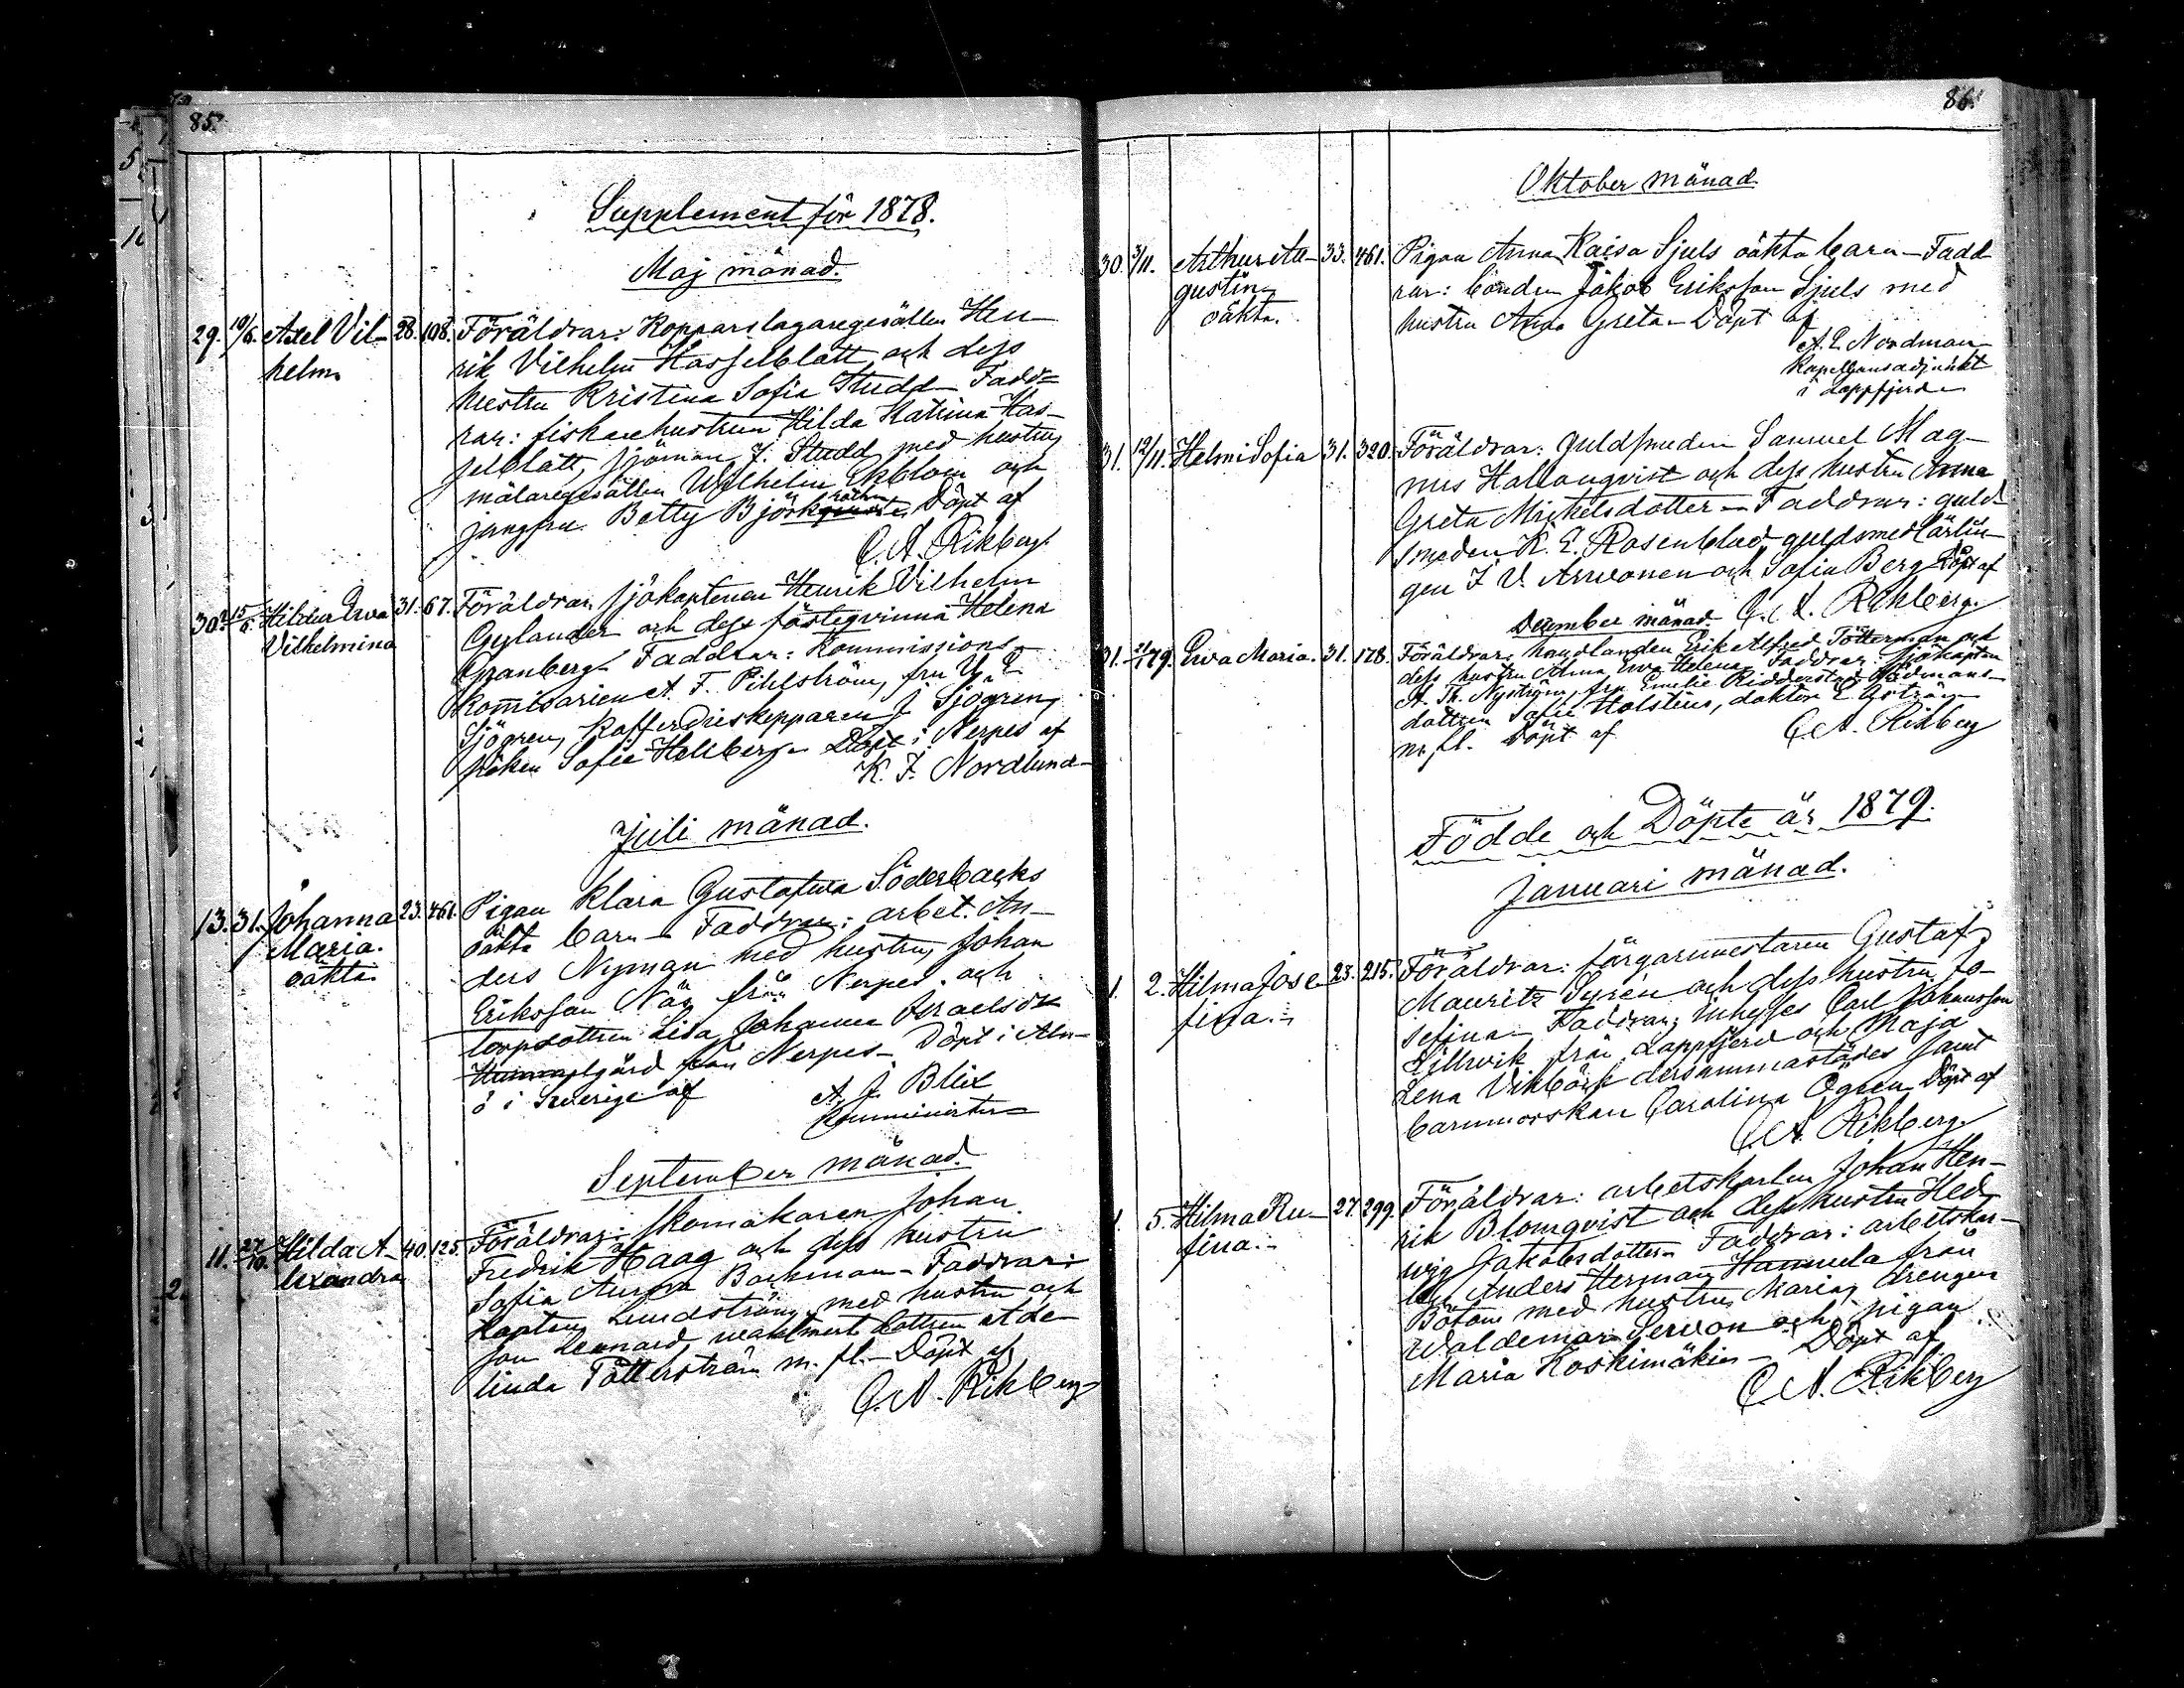 85.
Supplement för 1878.
Maj månad.
29. 10/6. Axel Vil- 28. 108. Föräldrar: Kopparslagaregesällen Hen-
helm rik Vilhelm Hasselblatt och dess
hustru Kristina Sofia Studd – Fadd=
rar: fiskarehustrun Hilda Katrina Has-
selblatt, sjöman J. Studd med hustru,
målaregesällen Wilhelm Ekblom och
jungfru Betty Björk Döpt af
C. A. Rikberg.
30. 15/6. Hildur Ewa 31. 67. Föräldrar: sjökaptenen Henrik Vilhelm
Vilhelmina Gylander och dess fästeqvinna Helena
Granberg – Faddrar: Kommissions-
komisarien A. F. Pihlström, fru
Sjögren, Kofferdieskepparen J. Sjögren,
fröken Sofie Hellberg – Döpt i Nerpes af
K. F. Nordlund
Juli månad.
13. 31. Johanna 23. 461. Pigan Klara Gustafwa Söderbacks
Maria. oäkta barn – Faddrar: arbet. An-
oäkta. ders Nyman med hustru, Johan
Eriksson Näs från Nerpes och
torpdottren Lisa Johanna Israelsdr
gård från Nerpes – Döpt i Aln-
ö i Swerige af A. J. Blix
Komminister
September månad.
11. 27/10. Hilda A- 40. 125. Föräldrar: skomakaren Johan
lexandra Fredrik Haag och dess hustru
Sofia Aurora Backman – Faddrar:
Kapten Lundström med hustru och
son Lennard, waktmest. dottren Ade-
linda Tötterström m. fl. – Döpt af
C. A. Rikberg
86.
Oktober månad
30. 3/11. Arthur Au- 33. 461. Pigan Anna Kaisa Sjuls oäkta barn – Fadd
gustin, rar: bonden Jakob Eriksson Sjuls med
oäkta. hustru Anna Greta – Döpt af
A. E. Nordman
Kapellansadjunkt
i Lappfjerd
31. 12/11. Helmi Sofia 31. 320. Föräldrar: guldsmeden Samuel Mag-
nus Hallanqvist och dess hustru Anna
Greta Mickelsdotter – Faddrar: guld
smeden K. E. Rosenblad guldsmedslärlin-
gen J. V. Arwonen och Sofia Berg Döpt af
December månad C. A. Rikberg.
31. 21/1 79. Ewa Maria. 31. 178. Föräldrar: handlanden Erik Alfred Tötterman och
dess hustru Alma Ewa Helena – Faddrar: sjökapten
A. Th. Nyström, fru Emelie Ridderstad, rådmans-
dottren Sofie Holstius, doktor E.
m. fl. Döpt af C. A. Rikberg
Födde och Döpte år 1879.
Januari månad.
1. 2. Hilma Jose- 23. 215. Föräldrar: färgaremästaren Gustaf
fina.- Mauritz Syrén och dess hustru Jo-
sefina – Faddrar: inhyses Carl Johansson
från Lappfjerd och Maja
Lena Vikbäck dersammastädes samt
barnmorskan Carolina Ögren Döpt af
C. A. Rikberg.
1. 5. Hilma Ru- 27. 299. Föräldrar: arbetskarlen Johan Hen-
fina.- rik Blomqvist och dess hustru Hed-
wig Jakobsdotter – Faddrar: arbetskar-
len Anders Herman Hannula från
Bötom med hustru Maria, drengen
Waldemar Serwon och pigan
Maria Koskimäki – Döpt af
C. A. Rikberg